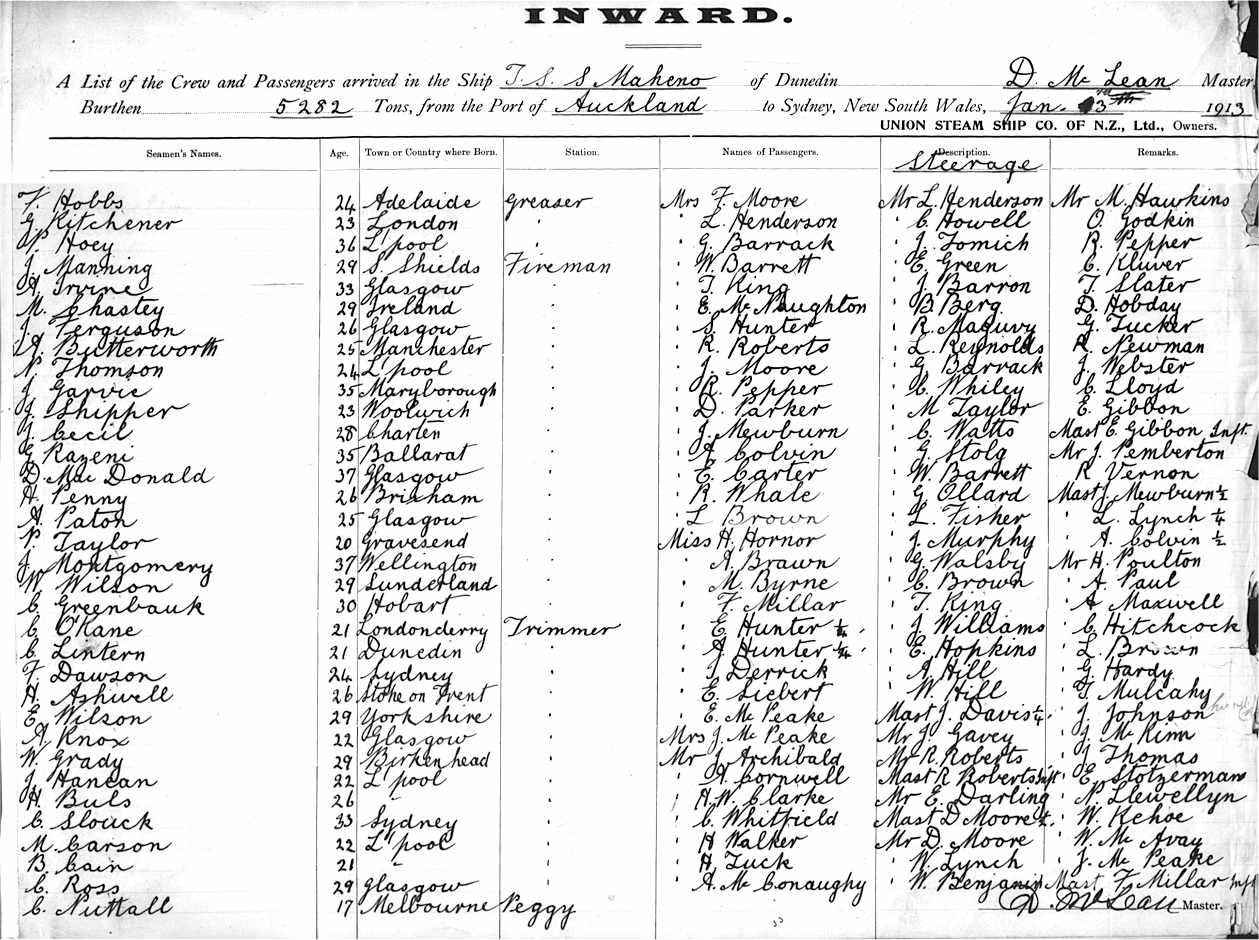 INWARD.
A List of the Crew and Passengers arrived in the Ship T. S. S Maheno of Dunedin D. Mc Lean Master
Burthen 5282 Tons, from the Port of Auckland to Sydney, New South Wales, Jan. 13th 1913
UNION STEAM SHIP CO. OF N.Z., Ltd., Owners.
Seamen's Names. Age. Town or Country where Born. Station. Names of Passengers. Description. Remarks.
Steerage
F. Hobbs 24 Adelaide Greaser Mrs F. Moore Mr L. Henderson Mr M. Hawkins
G. Kitchener 23 London " " L. Henderson " C. Howell O. Godkin
P. Hoey 36 L'pool " " G. Barrack " J. Tomich R. Pepper
J. Manning 29 S. Shields Fireman " W. Barrett " E. Green C. Kluver
A. Irvine 33 Glasgow " " T. King " J. Barron T. Slater
M. Shastey 29 Ireland " " E. Mc Naughton " B. Berg D. Hobday
J. Ferguson 26 Glasgow " " S. Hunter " R. Maguvy G. Tucker
A. Butterworth 25 Manchester " " R. Roberts " L. Reynolds R. Newman
N. Thomson 24 L'pool " " J. Moore " G. Barrack J. Webster
J. Garvie 35 Maryborough " " R. Pepper " C. Whiley C. Lloyd
J. Shipper 23 Woolwich " " D. Parker " M Taylor E. Gibbon
J. Cecil 28 Charten " " J. Mewburn " C. Watts Mast E. Gibbon Inft.
G. Kazeni 35 Ballarat " " A. Colvin " G. Stolg Mr J. Pemberton
D. Mac Donald 37 Glasgow " " E. Carter " W. Barrett " R Vernon
H. Penny 26 Brixham " " R. Whale " G. Ollard Mast J. Mewburn ½
A. Paton 25 Glasgow " " L Brown " L. Fisher " L. Lynch ¼
P. Taylor 20 Gravesend " Miss H. Hornor " J. Murphy " A. Colvin ½
J. Montgomery 37 Wellington " " A. Brawn " G. Walsby Mr H. Poulton
W. Wilson 29 Sunderland " " M. Byrne " C. Brown " A. Paul
C. Greenbauk 30 Hobart " " F. Millar " T. King " A Maxwell
C. O'Kane 21 Londonderry Trimmer " E. Hunter ¼ " J. Williams " C. Hitchcock
C. Lintern 21 Dunedin " " A. Hunter ¼ " E. Hopkins " L. Brown
F. Dawson 24 Sydney " " J. Derrick " A. Hill " G. Hardy
H. Ashwell 26 Stoke on Trent " " E. Siebert " W. Hill " T. Mulcahy
E. Wilson 29 Yorkshire " " E. Mc Peake Mast J. Davis ¼ " J. Johnson
A. Knox 22 Glasgow " Mrs J. Mc Peake Mr J. Gavey " J. Mc Kinn
W. Grady 29 Birkenhead " Mr J. Archibald Mr R. Roberts " J Thomas
J. Hancan 22 L'pool " " A. Cornwell Mast R Roberts Inft " E. Stolzerman
H. Buls 26 " " " H. W. Clarke Mr E. Darling " N. Llewellyn
C. Slouck 33 Sydney " " C. Whitfield Mast D Moore " W. Kehoe
M. Carson 22 L'pool " " H Walker Mr D. Moore " W. Mc Avay
B. Cain 21 " " " H. Tuck " W. Lynch " J. Mc Peake
C. Ross 29 Glasgow " " A. Mc Conaughy " W. Benjamin Mast F. Millar Inft
C. Nuttall 17 Melbourne Peggy D. McLean Master.